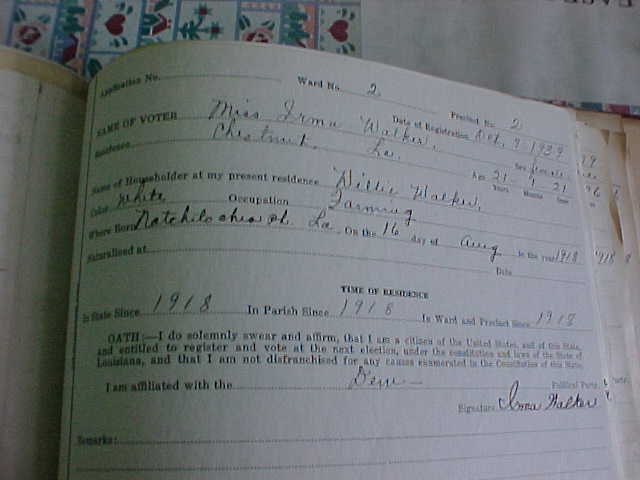 Application No. Ward No. 2 Precinct No. 2
NAME OF VOTER Miss Irma Walker. Date of Registration Oct. 7-1939
Residence Chestnut, La. Sex female
Name of Householder at my present residence Willie Walker. Age 21 Years 1 Months 21 Days
Color White Occupation Farming
Where Born Natchitoches ph. La. On the 16 day of Aug in the year 1918
Naturalized at Date
TIME OF RESIDENCE
In State Since 1918 In Parish Since 1918 In Ward and Precinct Since 1918
OATH:—I do solemnly swear and affirm, that I am a citizen of the United States, and of this State,
and entitled to register and vote at the next election, under the constitution and laws of the State of
Louisiana, and that I am not disfranchised for any causes enumerated in the Constitution of this State.
I am affiliated with the Dem Political Party.
Signature Irma Walker
Remarks: